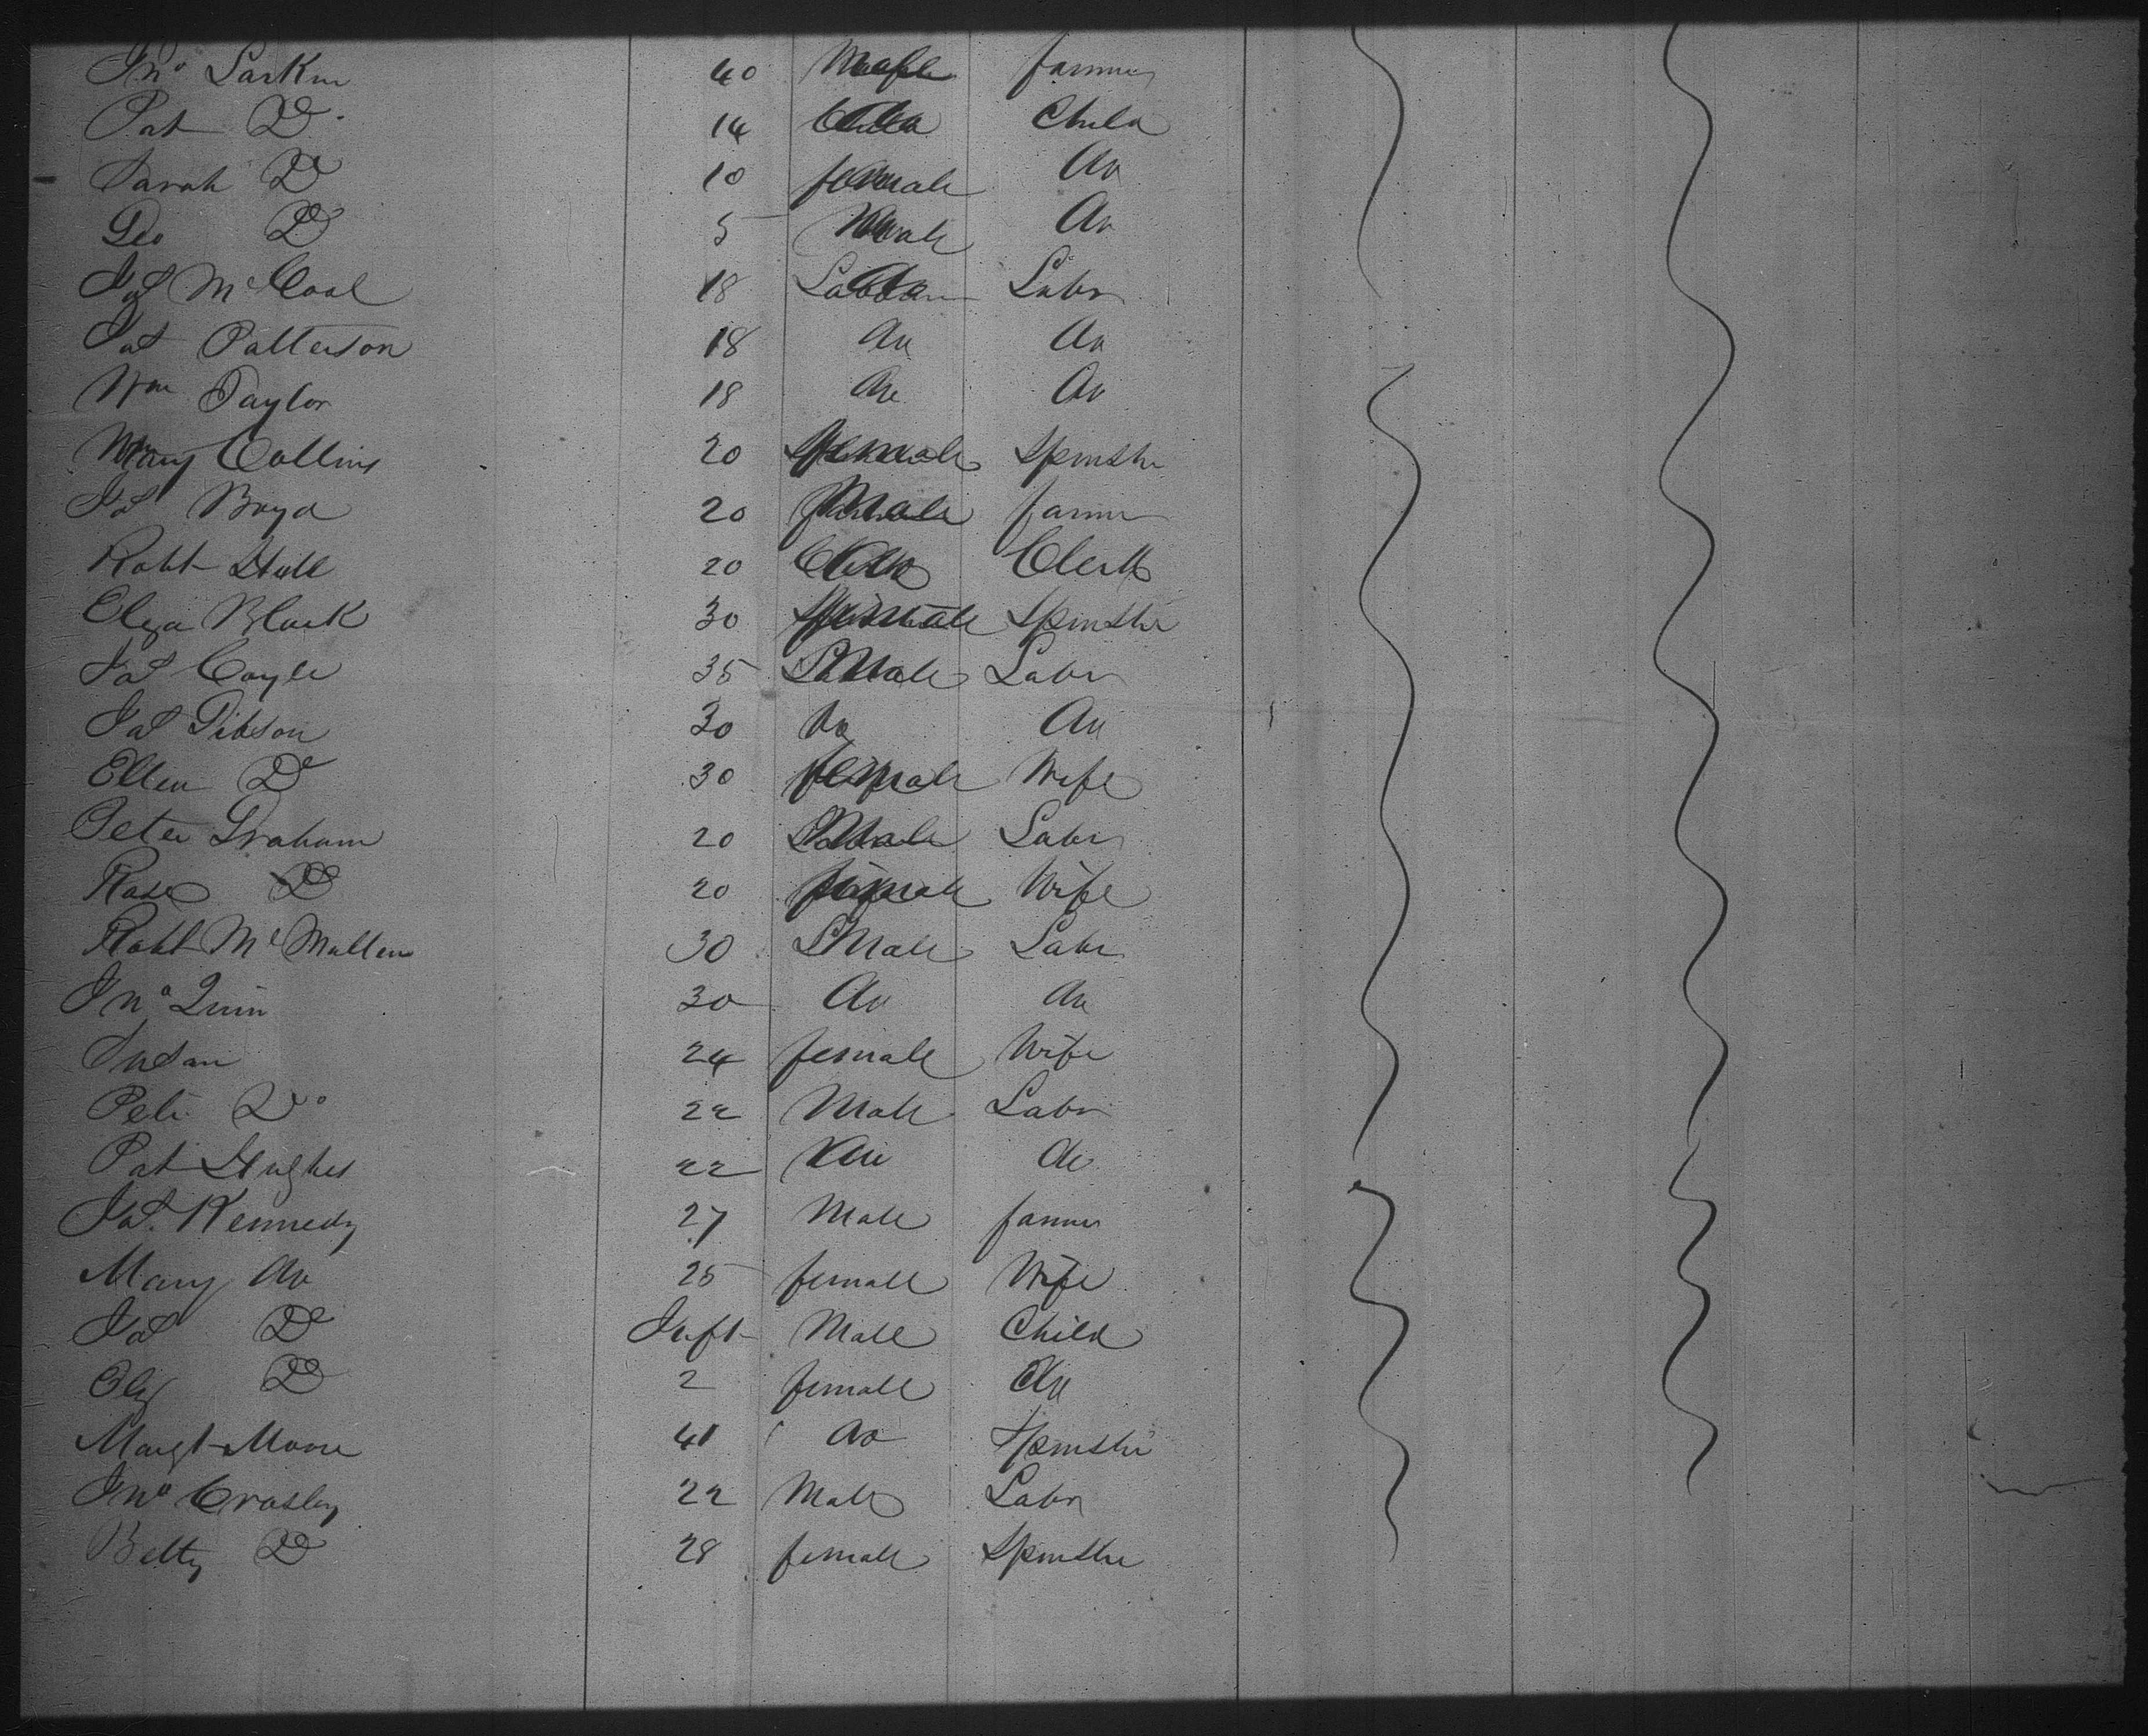 Jno Larkin 40 Male farmer
Pat Do 14 Child
Sarah Do 10 female Do
Geo Do 5 Male Do
Jas McCool 18 Labr
Jas Patterson 18 Do Do
Wm Taylor 18 Do Do
Mary Collins 20 female Spinster
Jas Boyd 20 Male farmer
Robt Hull 20 Clerk
Eliza Black 30 female Spinster
Jas Coyle 35 Male Labr
Jas Gibson 30 Do Do
Ellen Do 30 female Wife
Peter Graham 20 Male Labr
Rose Do 20 female Wife
Robt McMullen 30 Male Labr
Jno Quin 30 Do Do
Susan 24 female Wife
Peter Do 22 Male Labr
Pat Hughes 22 Do Do
Jas. Kennedy 27 Male farmer
Mary Do 25 female Wife
Jas Do Inft Male Child
Eliz Do 2 female Do
Margt Moore 41 Do Spinster
Jno Crosley 22 Male Labr
Betty Do 28 female Spinster